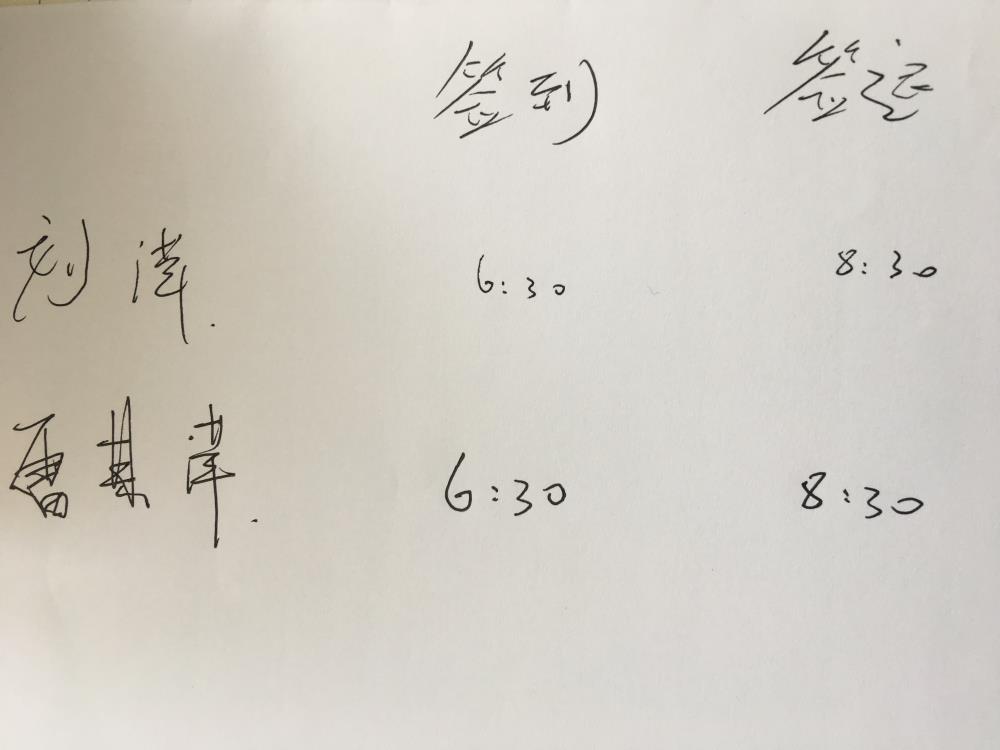 签到 签退
刘 6:30 8:30
雷 6:30 8:30